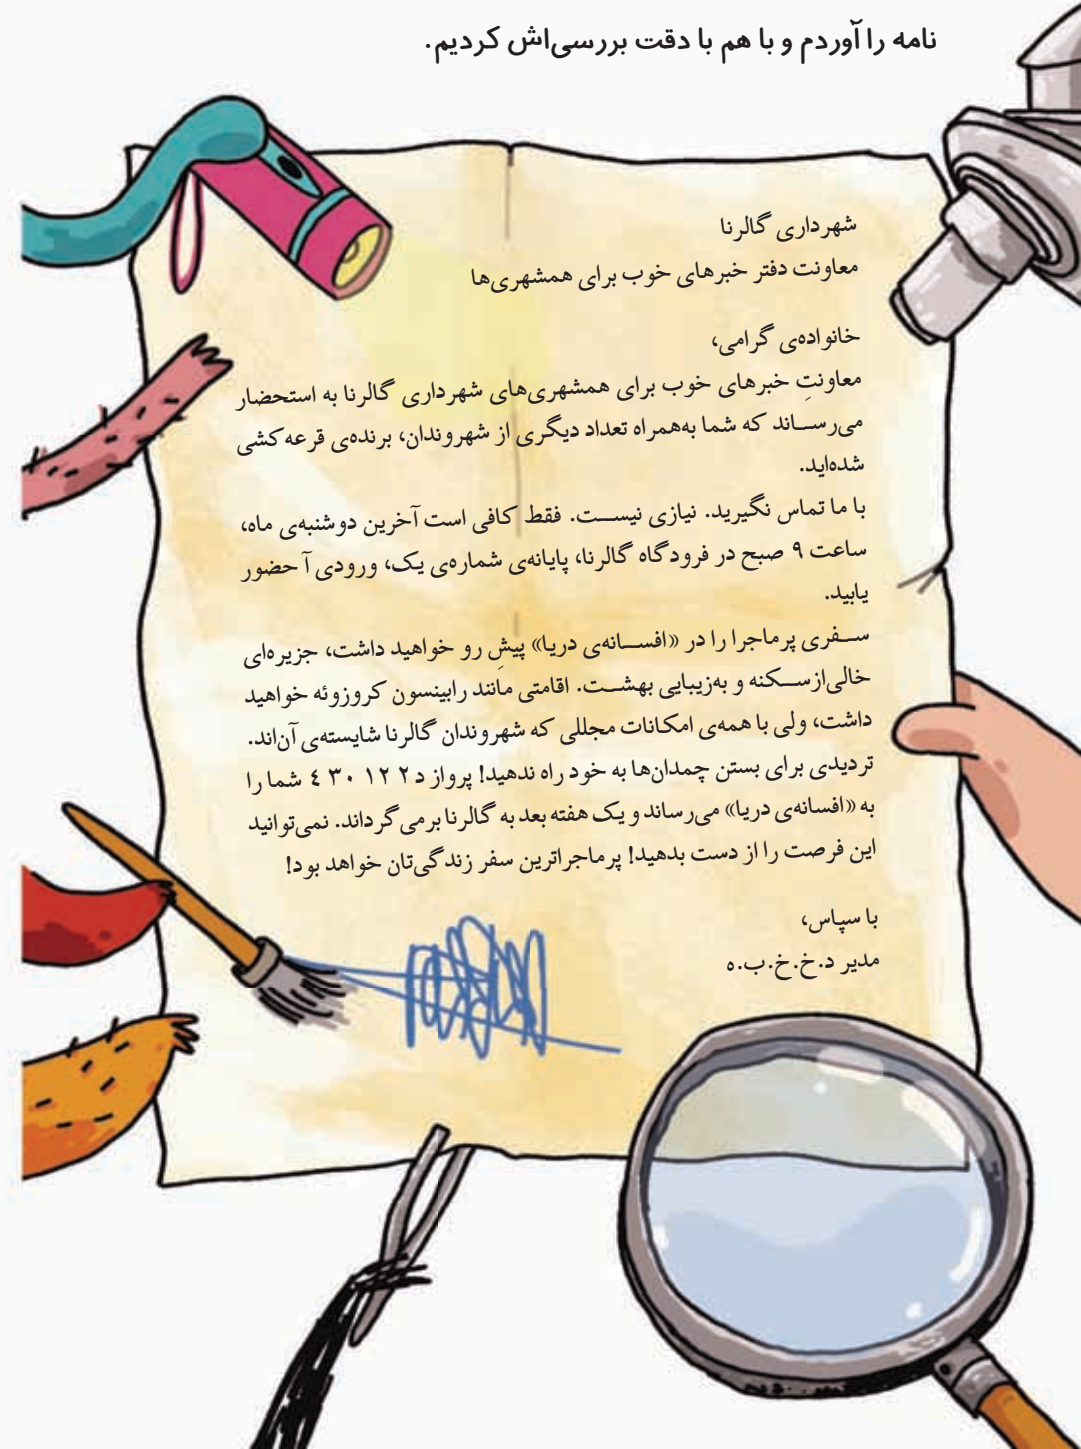 نامه را آوردم و با هم با دقت بررسی‌اش کردیم.
شهرداری گالرنا
معاونت دفتر خبرهای خوب برای همشهری‌ها
خانواده‌ی گرامی،
معاونتِ خبرهای خوب برای همشهری‌های شهرداری گالرنا به استحضار
می‌رساند که شما به‌همراه تعداد دیگری از شهروندان، برنده‌ی قرعه‌کشی
شده‌اید.
با ما تماس نگیرید. نیازی نیست. فقط کافی است آخرین دوشنبه‌ی ماه،
ساعت ۹ صبح در فرودگاه گالرنا، پایانه‌ی شماره‌ی یک، ورودی آ حضور
یابید.
سفری پرماجرا را در «افسانه‌ی دریا» پیشِ رو خواهید داشت، جزیره‌ای
خالی‌ازسکنه و به‌زیبایی بهشت. اقامتی مانند رابینسون کروزوئه خواهید
داشت، ولی با همه‌ی امکانات مجللی که شهروندان گالرنا شایسته‌ی آن‌اند.
تردیدی برای بستن چمدان‌ها به خود راه ندهید! پرواز د ۲ ۱۲ ۳۰ ٤ شما را
به «افسانه‌ی دریا» می‌رساند و یک هفته بعد به گالرنا برمی‌گرداند. نمی‌توانید
این فرصت را از دست بدهید! پرماجراترین سفر زندگی‌تان خواهد بود!
با سپاس،
مدیر د.خ.خ.ب.ه